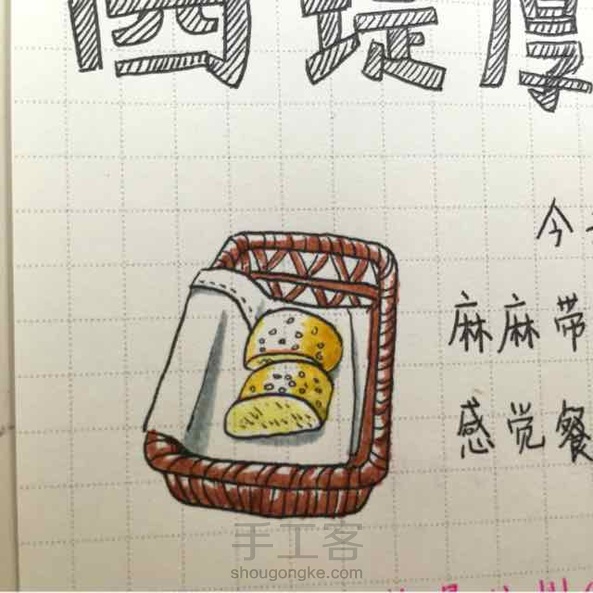 西堤厚
今
麻麻带
感觉餐
手工客
shougongke.com